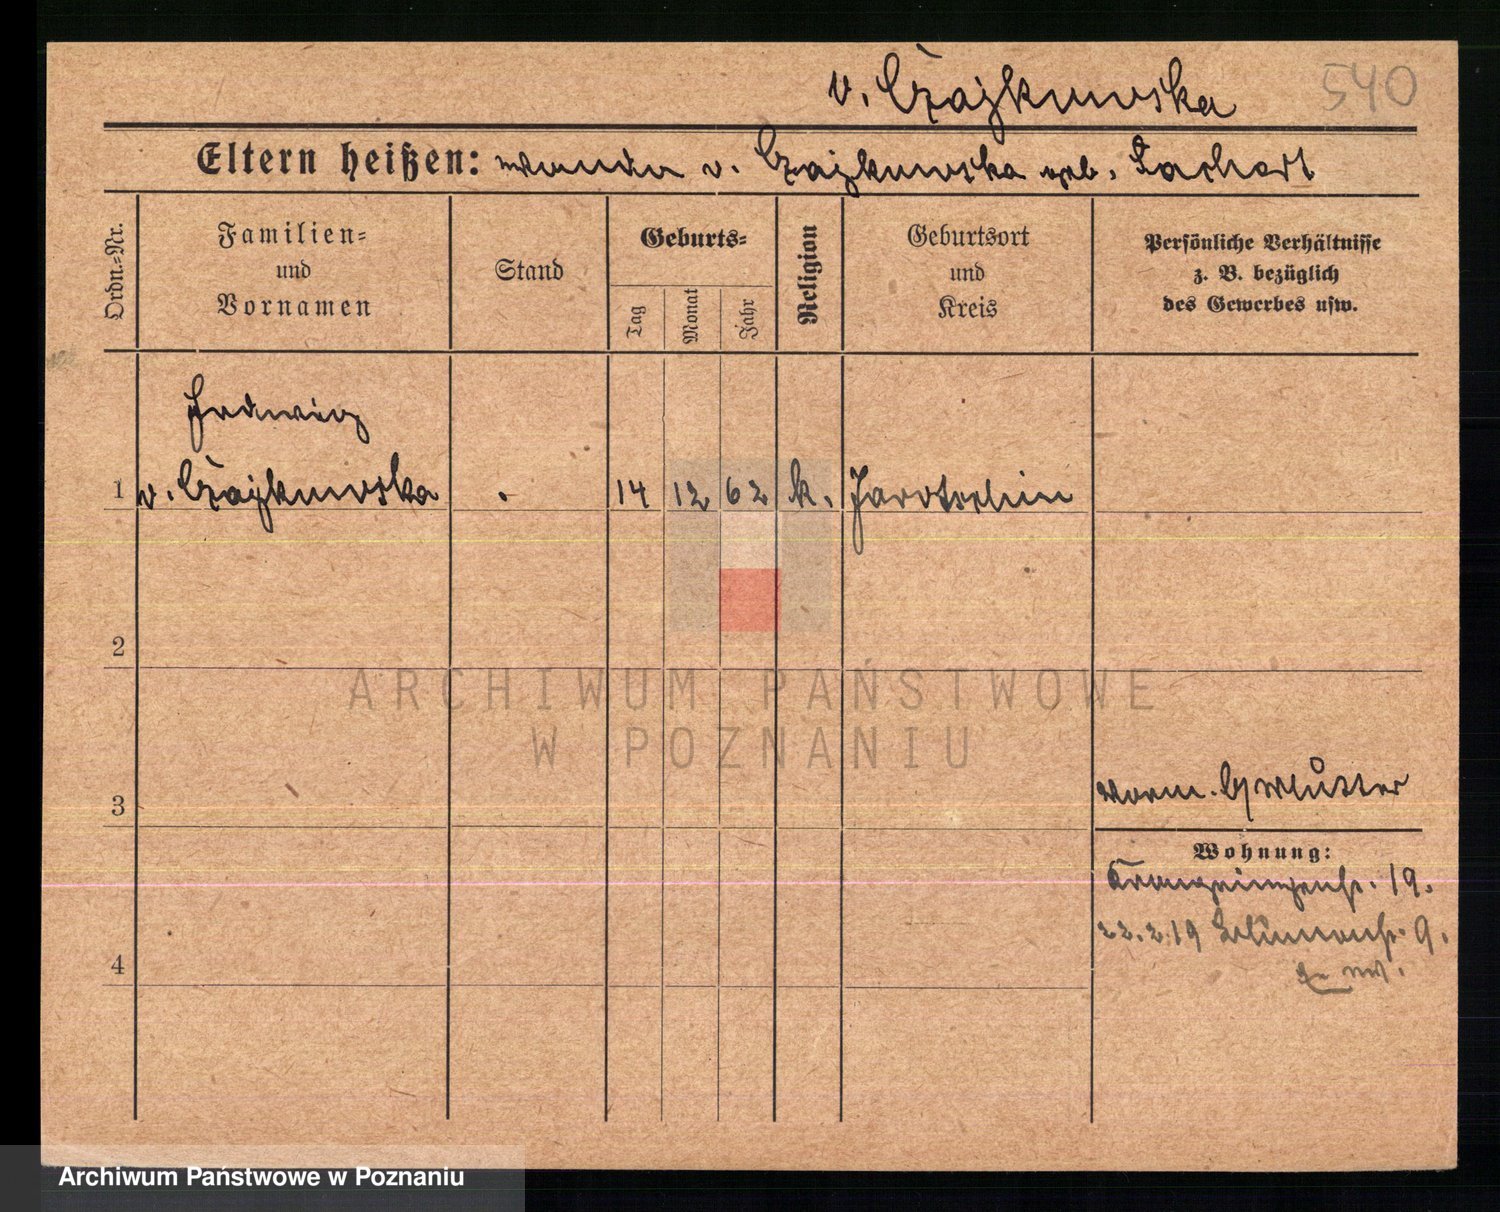 v. Czajkowska 540
Eltern heißen: Wanda v. Czajkowska geb. Sachert
Ordn.-Nr.
Familien-
und
Vornamen
Stand
Geburts-
Tag
Monat
Jahr
Religion
Geburtsort
und
Kreis
Persönliche Verhältnisse
z. B. bezüglich
des Gewerbes usw.
Hedwig
1 v. Czajkowska . 14 12 62 k. Jarotschin
2
ARCHIWUM PAŃSTWOWE
W POZNANIU
3
Mutter
Wohnung:
Kronprinzenstr. 19.
22.2.19 Blumenstr. 9.
4
Archiwum Państwowe w Poznaniu